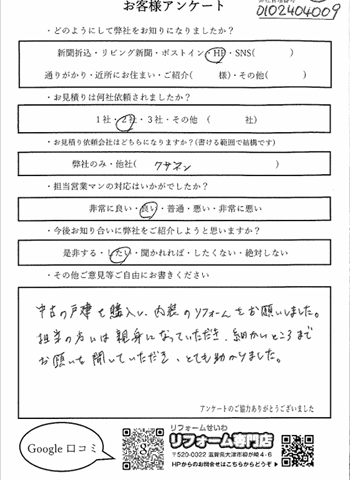 お客様アンケート
0102404009
・どのようにして弊社をお知りになりましたか?
新聞折込・リビング新聞・ポストイン・HP・SNS( )
通りがかり・近所にお住まい・ご紹介( 様)・その他( )
・お見積りは何社依頼されましたか?
1社・2社・3社・その他 ( 社)
・お見積り依頼会社はどちらになりますか?(書ける範囲で結構です)
弊社のみ・他社( クサネン )
・担当営業マンの対応はいかがでしたか?
非常に良い・良い・普通・悪い・非常に悪い
・今後お知り合いに弊社をご紹介しようと思いますか?
是非する・したい・聞かれれば・したくない・絶対しない
・その他ご意見等ご自由にお書きください
中古の戸建を購入し、内装のリフォームをお願いしました。
担当の方には親身になっていただき、細かいところまで
お願いを聞いていただき、とても助かりました。
アンケートのご協力ありがとうございました
Google 口コミ
リフォームせいわ
リフォーム専門店
〒520-0022 滋賀県大津市柳が崎4-6
HPからのお問合せはこちらからどうぞ